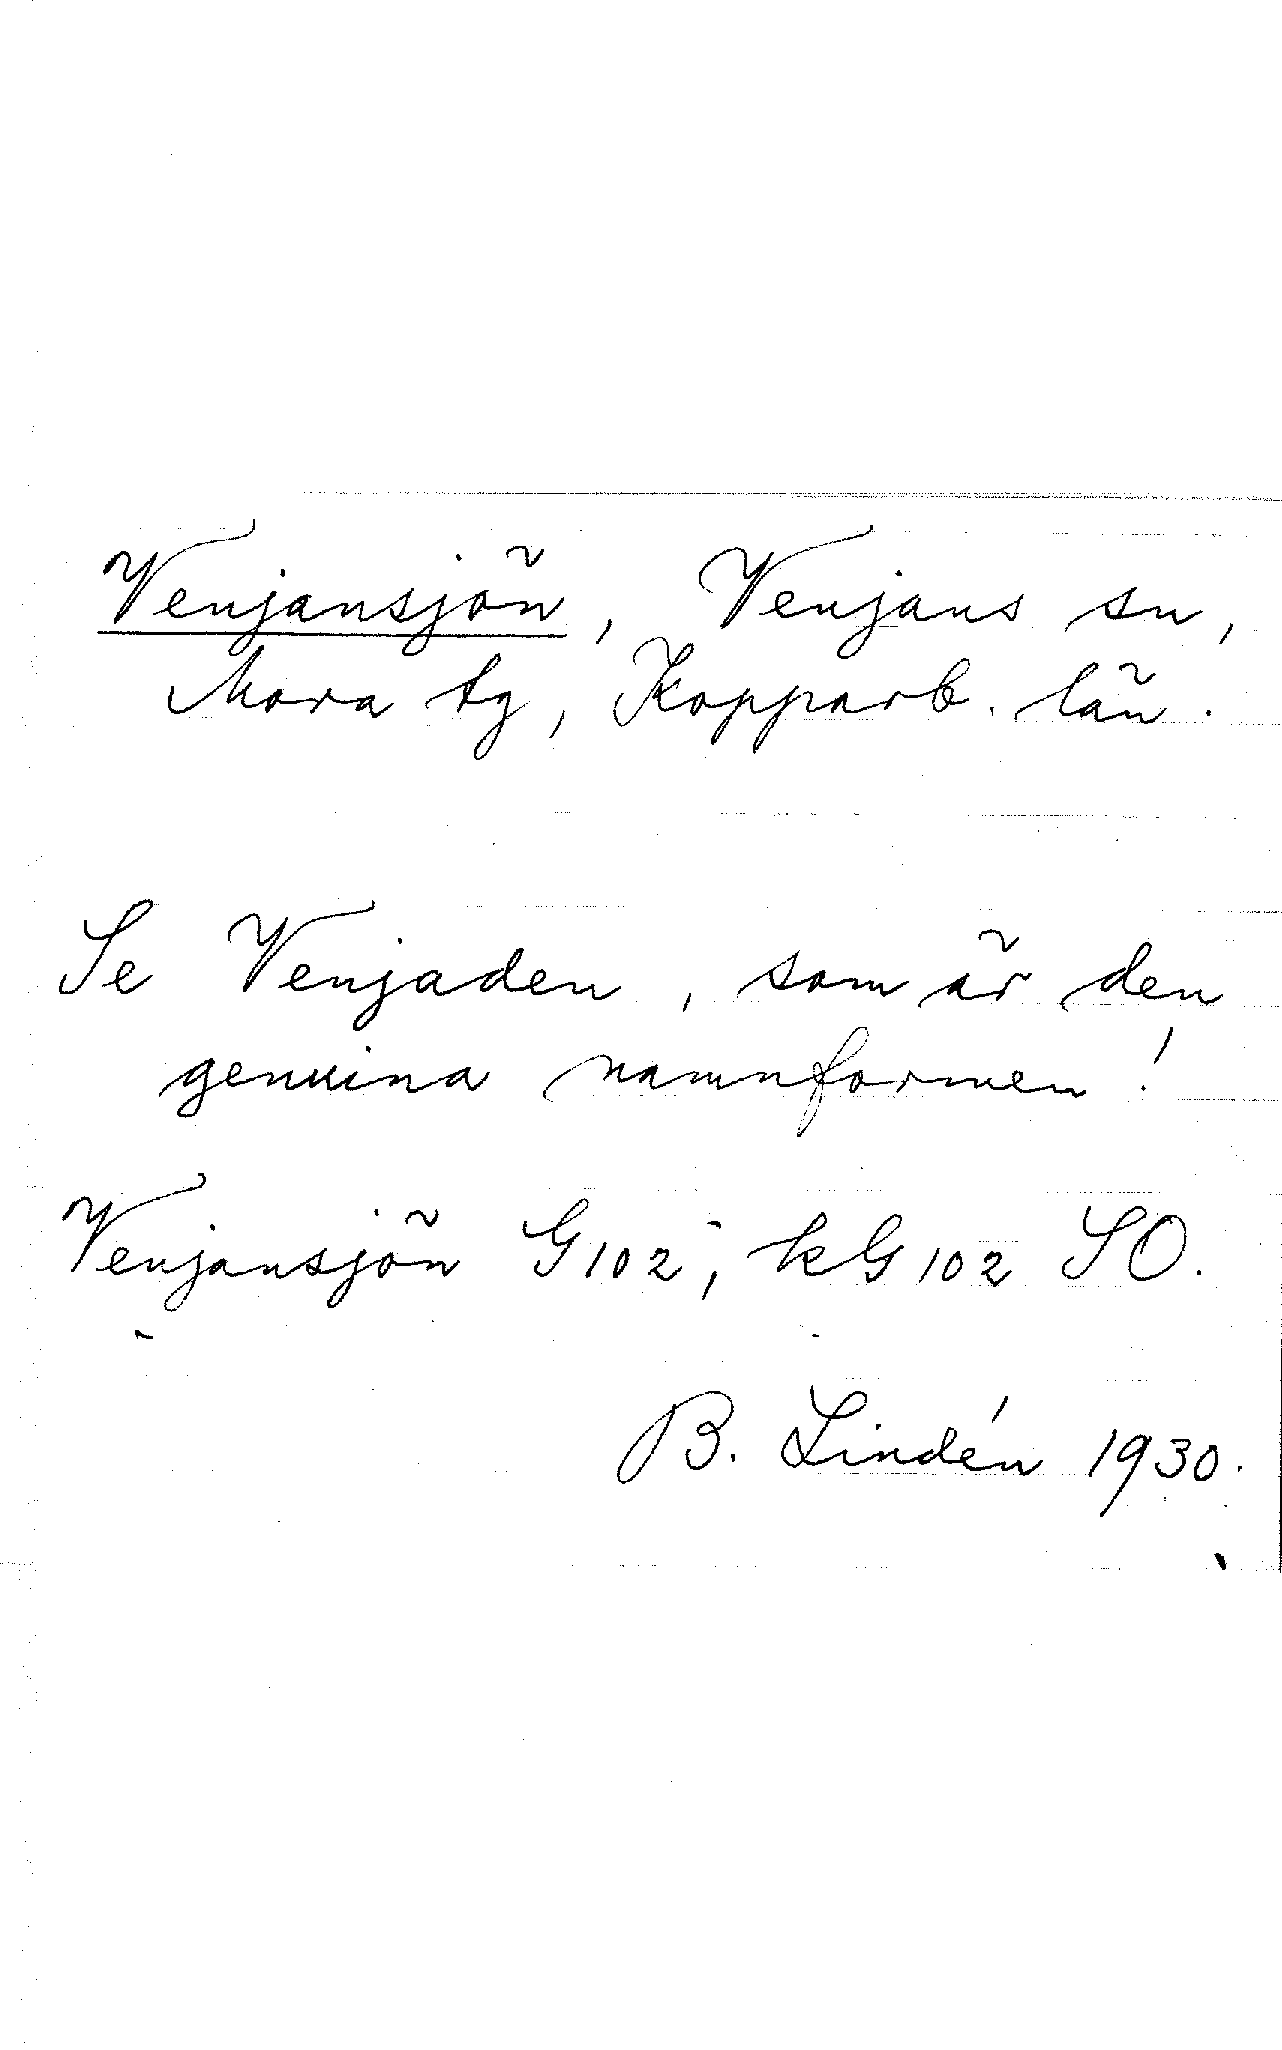 Venjansjön, Venjans sn,
Mora tg, Kopparb. län.
Se Venjaden, som är den
genuina namnformen!
Venjansjön G102; kG102 SO.
B. Lindén 1930.